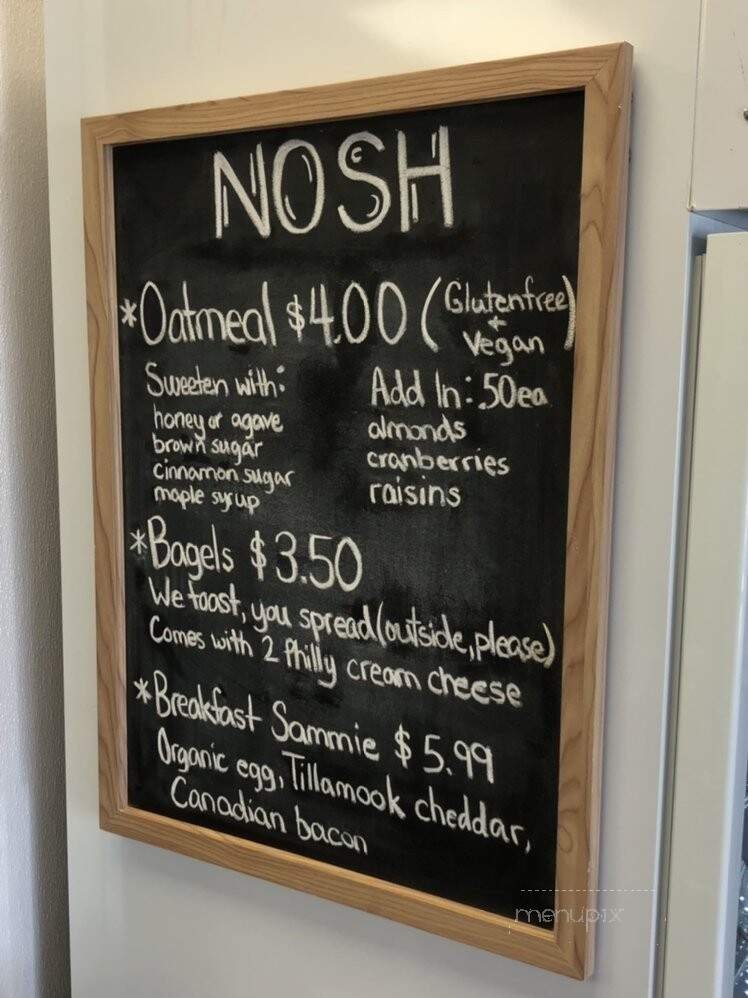 NOSH
*Oatmeal $4.00 (Glutenfree + Vegan)
Sweeten with:
honey or agave
brown sugar
cinnamon sugar
maple syrup
Add In: .50ea
almonds
cranberries
raisins
*Bagels $3.50
We toast, you spread (outside, please)
Comes with 2 Philly cream cheese
*Breakfast Sammie $5.99
Organic egg, Tillamook cheddar,
Canadian bacon
menupix